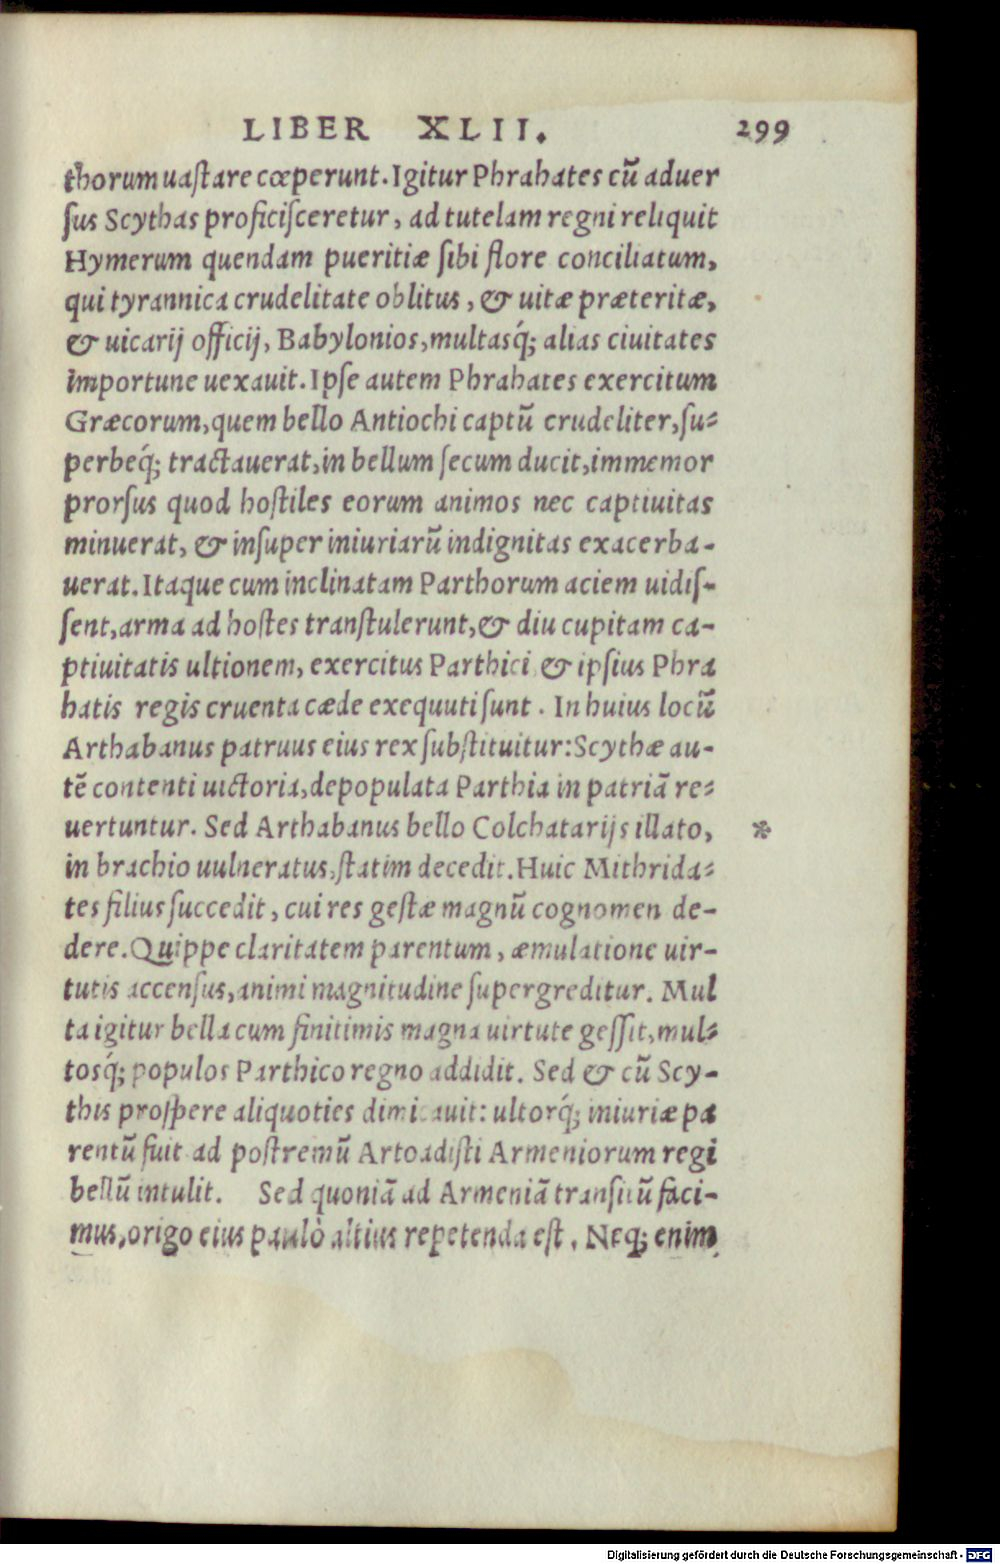 LIBER XLII. 299
thorum uaſtare cœperunt. Igitur Phrahates cũ aduer
ſus Scythas proficiſceretur, ad tutelam regni reliquit
Hymerum quendam pueritiæ ſibi flore conciliatum,
qui tyrannica crudelitate oblitus, & uitæ præteritæ,
& uicarij officij, Babylonios, multasq́; alias ciuitates
importune uexauit. Ipſe autem Phrahates exercitum
Græcorum, quem bello Antiochi captũ crudeliter, ſu-
perbeq́; tractauerat, in bellum ſecum ducit, immemor
prorſus quod hoſtiles eorum animos nec captiuitas
minuerat, & inſuper iniuriarũ indignitas exacerba-
uerat. Itaque cum inclinatam Parthorum aciem uidiſ-
ſent, arma ad hoſtes tranſtulerunt, & diu cupitam ca-
ptiuitatis ultionem, exercitus Parthici & ipſius Phra
hatis regis cruenta cæde exequuti ſunt. In huius locũ
Arthabanus patruus eius rex ſubſtituitur: Scythæ au-
tẽ contenti uictoria, depopulata Parthia in patriã re-
uertuntur. Sed Arthabanus bello Colchatarijs illato, *
in brachio uulneratus, ſtatim decedit. Huic Mithrida-
tes filius ſuccedit, cui res geſtæ magnũ cognomen de-
dere. Quippe claritatem parentum, æmulatione uir-
tutis accenſus, animi magnitudine ſupergreditur. Mul
ta igitur bella cum finitimis magna uirtute geſſit, mul-
tosq́; populos Parthico regno addidit. Sed & cũ Scy-
this proſpere aliquoties dimicauit: ultorq́; iniuriæ pa
rentũ fuit ad poſtremũ Artoadiſti Armeniorum regi
bellũ intulit. Sed quoniã ad Armeniã tranſitũ faci-
mus, origo eius paulò altius repetenda eſt. Neq; enim
Digitalisierung gefördert durch die Deutsche Forschungsgemeinschaft - DFG